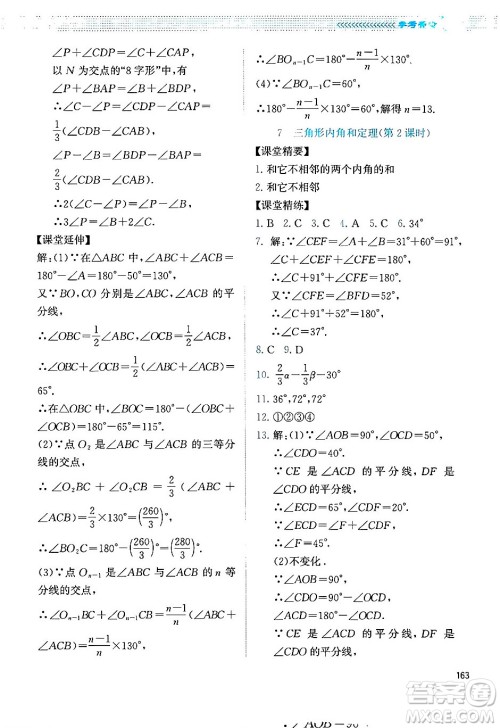 参考答案
∠P+∠CDP=∠C+∠CAP,
以N为交点的“8字形”中,
∠P+∠BAP=∠B+∠BDP,
∴∠C-∠P=∠CDP-∠CAP=
1/3(∠CDB-∠CAB),
∠P-∠B=∠BDP-∠BAP=
2/3(∠CDB-∠CAB),
∴2(∠C-∠P)=∠P-∠B,
∴3∠P=∠B+2∠C.
【课堂延伸】
解:(1)∵在△ABC中,∠ABC+∠ACB=
180°-∠A=180°-50°=130°,
又∵BO,CO分别是∠ABC,∠ACB的平
分线,
∴∠OBC=1/2∠ABC,∠OCB=1/2∠ACB,
∴∠OBC+∠OCB=1/2(∠ABC+∠ACB)=
65°.
∴在△OBC中,∠BOC=180°-(∠OBC+
∠OCB)=180°-65°=115°.
(2)∵点O₂是∠ABC与∠ACB的三等分
线的交点,
∴∠O₂BC+∠O₂CB=2/3(∠ABC+
∠ACB)=2/3×130°=(260/3)°,
∴∠BO₂C=180°-(260/3)°=(280/3)°.
(3)∵点Oₙ₋₁是∠ABC与∠ACB的n等
分线的交点,
∴∠Oₙ₋₁BC+∠Oₙ₋₁CB=n-1/n(∠ABC+
∠ACB)=n-1/n×130°,
∴∠BOₙ₋₁C=180°-n-1/n×130°.
(4)∵∠BOₙ₋₁C=60°,
∴180°-n-1/n×130°=60°,解得n=13.
7 三角形内角和定理(第2课时)
【课堂精要】
1. 和它不相邻的两个内角的和
2. 和它不相邻
【课堂精练】
1. B 2. C 3. C 4. A 5. C 6. 34°
7. 解:∵∠CEF=∠A+∠B=31°+60°=91°,
∠C+∠CEF+∠CFE=180°,
∴∠C+91°+∠CFE=180°,
又∵∠CFE=∠BFD=52°,
∴∠C+91°+52°=180°,∴∠C=37°.
8. C 9. D
10. 2/3α-1/3β-30°
11. 36°,72°,72°
12. ①③④
13. 解:(1)∵∠AOB=90°,∠OCD=50°,
∴∠CDO=40°.
∵CE是∠ACD的平分线,DF是
∠CDO的平分线,
∴∠ECD=65°,∠CDF=20°.
∵∠ECD=∠F+∠CDF,
∴∠F=45°.
(2)不变化.
∵∠AOB=90°,
∴∠CDO=90°-∠OCD,
∠ACD=180°-∠OCD.
∵CE是∠ACD的平分线,DF是
∠CDO的平分线,
163